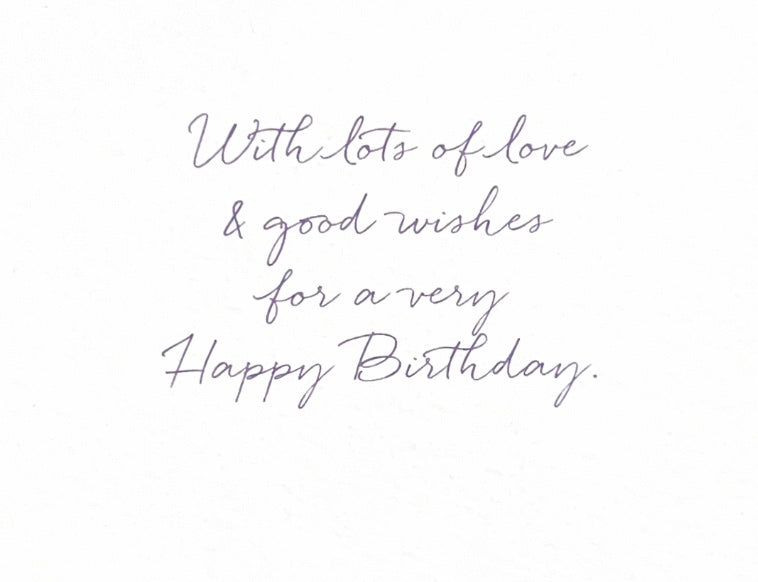 With lots of love
& good wishes
for a very
Happy Birthday.